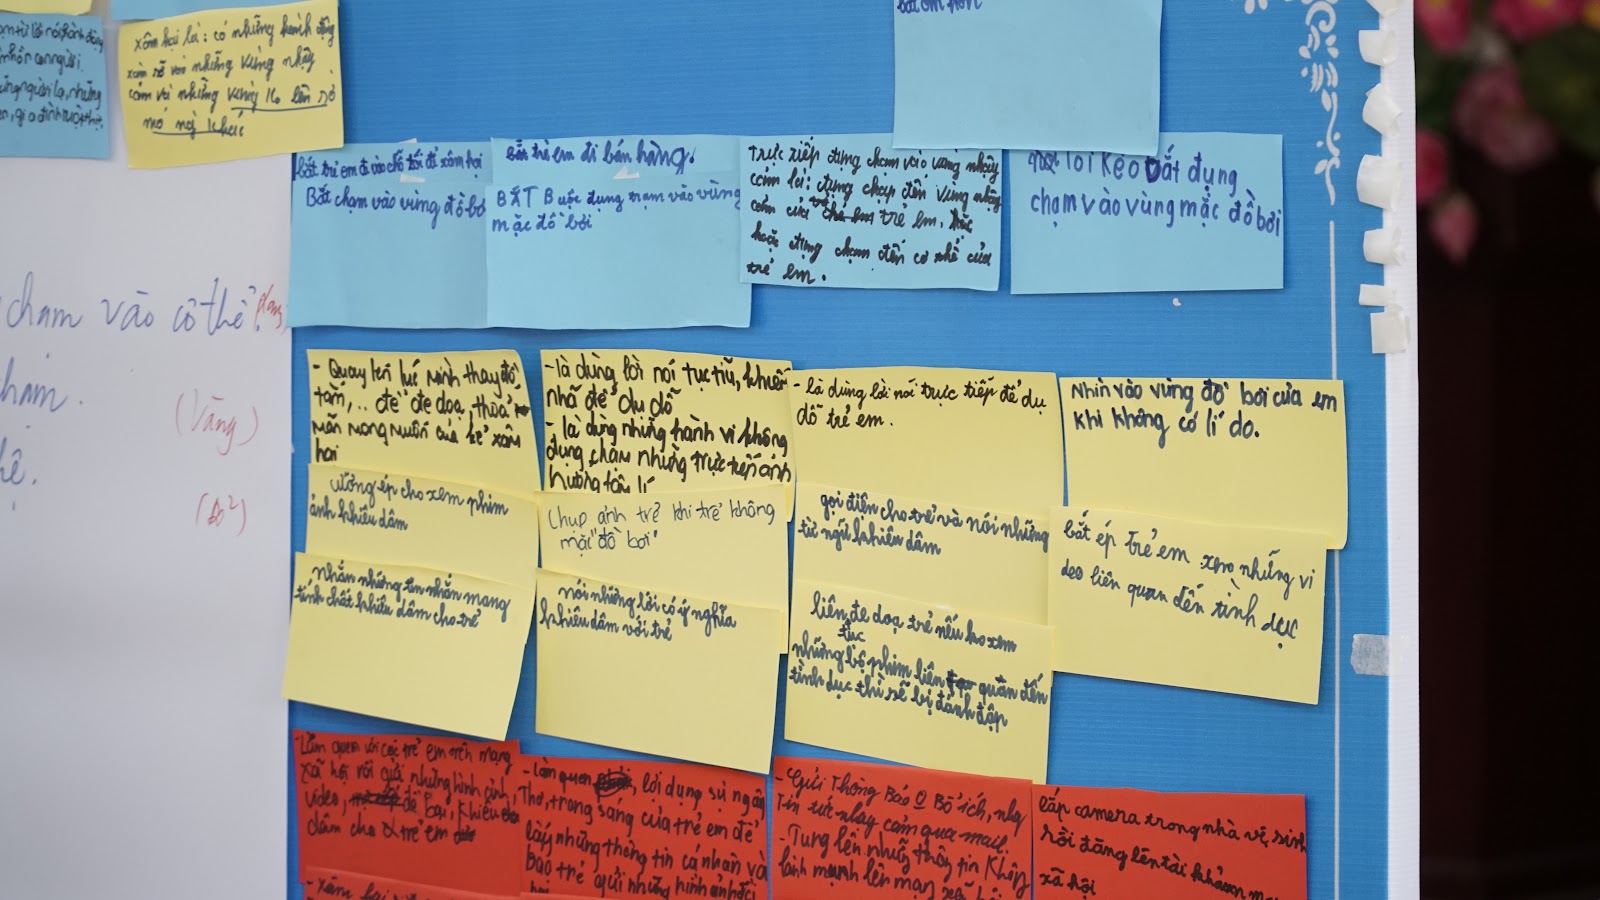 bất ổn hơn
xâm hại là: có những hành động
xàm sỡ với những vùng nhạy
cảm và những vùng ko lên sỡ
mó ngị khác
từ lời nói hành động
con người.
người lạ, những
gia đình ruột thịt,
chạm vào cơ thể.
chạm.
(Vàng)
hệ.
bắt trẻ em đi vào chỗ tối để xâm hại
Bắt chạm vào vùng đồ bơi
Bắt trẻ em đi bán hàng.
BẮT Buộc đụng trạm vào vùng
mặc đồ bơi
Trực tiếp đụng chạm vào vùng nhạy
cảm là: đụng chạp đến vùng nhậy
cảm của trẻ em,
hoặc đụng chạm đến cơ thể của
trẻ em.
lôi kéo bắt đụng
chạm vào vùng mặc đồ bơi
- Quay lén lúc mình thay đồ
tắm,.. để đe doạ, thoả
mãn mong muốn của kẻ xâm
hại
- là dùng lời nói tục tĩu, khiếm
nhã để dụ dỗ
- là dùng những hành vi không
đụng chạm nhưng trực tiếp ảnh
hưởng tâm lí
- là dùng lời nói trực tiếp để dụ
dỗ trẻ em.
Nhìn vào vùng đồ bơi của em
khi không có lí do.
cưỡng ép cho xem phim
ảnh khiêu dâm
Chụp ảnh trẻ khi trẻ không
mặc "đồ bơi"
gọi điện cho trẻ và nói những
từ ngữ khiêu dâm
bắt ép trẻ em xem những vi
deo liên quan đến tình dục
nhắn những tin nhắn mang
tính chất khiêu dâm cho trẻ
nói những lời có ý nghĩa
khiêu dâm với trẻ
liên tục đe doạ trẻ nếu ko xem
những bộ phim liên quan đến
tình dục thì sẽ bị đánh đập
- Làm quen với các trẻ em trên mạng
xã hội rồi gửi những hình ảnh,
video, đồ bại, khiêu
dâm cho trẻ em
- Làm quen, lợi dụng sự ngây
thơ, trong sáng của trẻ em để
lấy những thông tin cá nhân và
bảo trẻ gửi những hình ảnh
- Gửi Thông Báo Bổ ích, nhg
Tin tức nhạy cảm qua mail.
- Tung lên những thông tin không
lành mạnh lên mạng xã hội
lắp camera trong nhà vệ sinh
rồi đăng lên tài khoản mạng
xã hội
- xâm hại